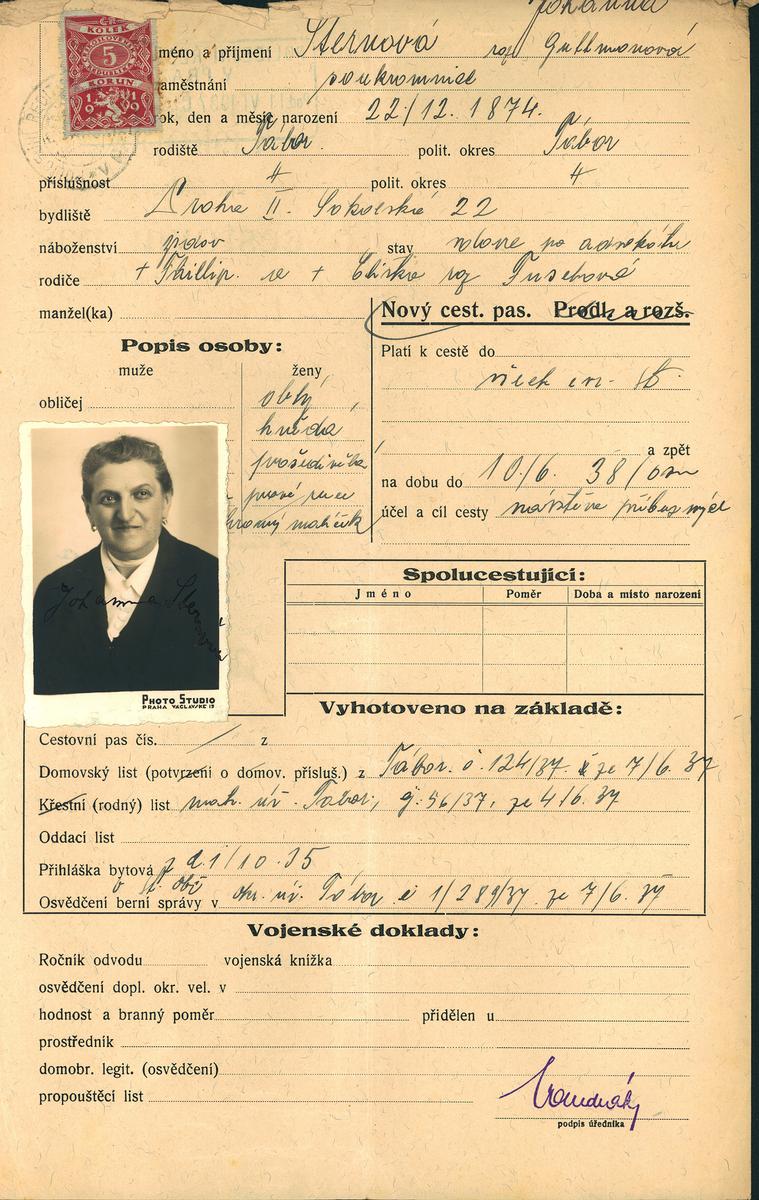 Johanna
ČR.
KOLEK
5
KORUN
1919
jméno a příjmení Sternová roz. Guttmanová
zaměstnání soukromnice
rok, den a měsíc narození 22/12. 1874.
rodiště Tábor polit. okres Tábor
příslušnost " polit. okres "
bydliště Praha II. Sokolská 22
náboženství židov stav vdova po advokátu
rodiče + Phillip a + Eliška roz
manžel(ka)
Nový cest. pas. Prodl. a rozš.
Popis osoby:
muže ženy
obličej oblý
hnědá
prošedivělá
Platí k cestě do
všech evr. st.
a zpět
na dobu do 10/6. 38
účel a cíl cesty návštěva příbuzných
Johanna Sternová
PHOTO STUDIO
PRAHA VÁCLAVSKÉ
Spolucestující:
Jméno Poměr Doba a místo narození
Vyhotoveno na základě:
Cestovní pas čís. z
Domovský list (potvrzení o domov. přísluš.) z Tábor. č. 124/37. ze 7/6. 37
Křestní (rodný) list mat. úř. Tábor, č. 56/37, ze 4/6. 37
Oddací list
Přihláška bytová z d. 1/10. 35
Osvědčení berní správy v okr. úř. Tábor či 1/289/37 ze 7/6. 37
Vojenské doklady:
Ročník odvodu vojenská knížka
osvědčení dopl. okr. vel. v
hodnost a branný poměr přidělen u
prostředník
domobr. legit. (osvědčení)
propouštěcí list
podpis úředníka